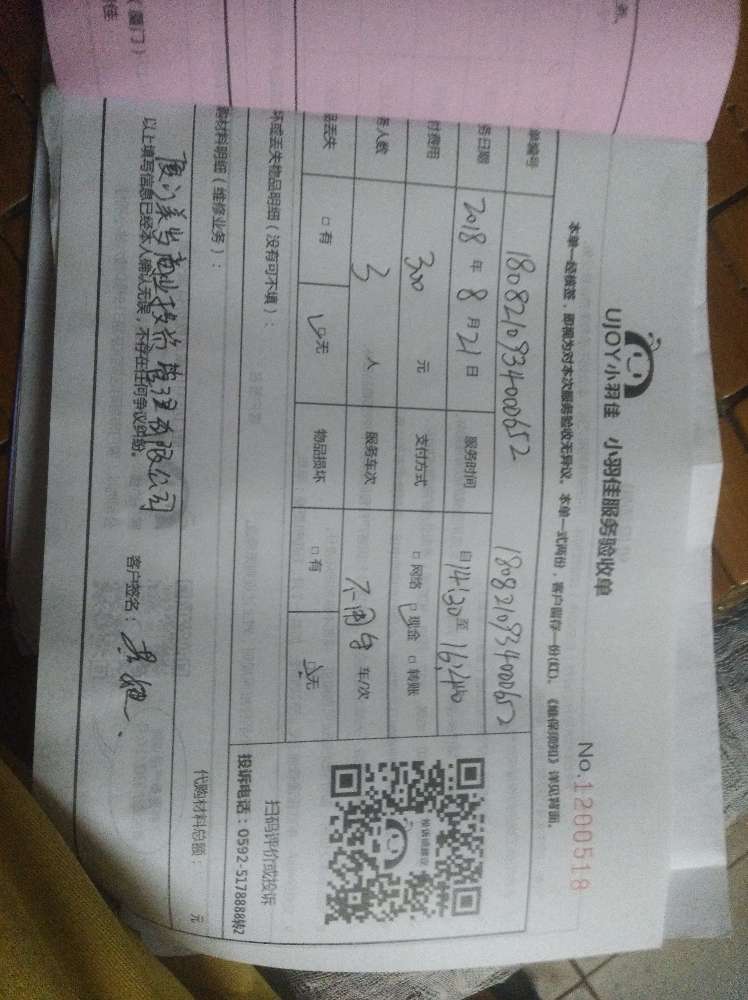 UJOY小羽佳 小羽佳服务验收单
No.1200518
本单一经核签，即视为对本次服务验收无异议。本单一式两份，客户留存一份(红)。《维保须知》详见背面。
单编号 1808210934000652 1808210934000652
务日期 2018 年 8 月 21 日 服务时间 日 14:30 至 16:40
付费用 300 元 支付方式 □ 网络 □ 现金 □ 转账
务人数 3 人 服务车次 不用车 车/次
品丢失 □ 有 □ 无 物品损坏 □ 有 □ 无
坏或丢失物品明细（没有可不填）：
投诉或建议
扫码评价或投诉
投诉电话：0592-5178888转2
购材料明细（维修业务）：
代购材料总额： 元
商业投资管理有限公司
以上填写信息已经本人确认无误，不存在任何争议纠纷。 客户签名：
（厦门）
佳